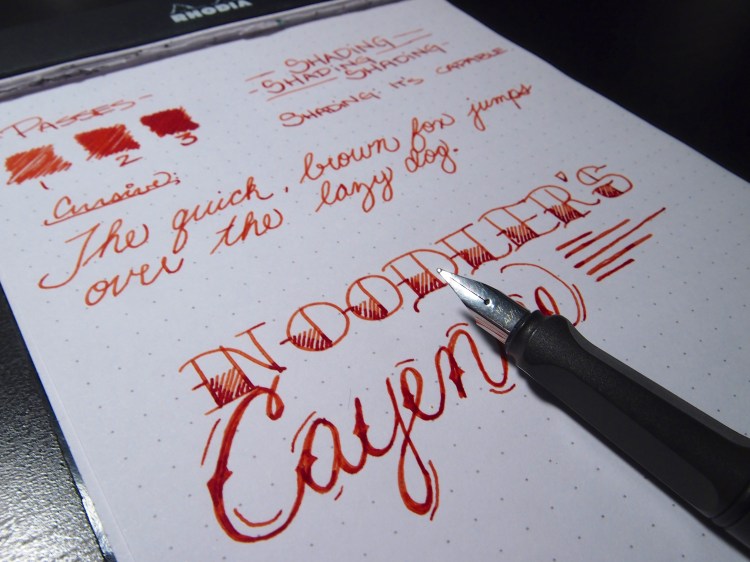 RHODIA
— SHADING —
SHADING
- SHADING -
SHADING: IT'S CAPABLE
PASSES -
1 2 3
Cursive:
The quick, brown fox jumps
over the lazy dog.
NOODLER'S
Cayenne